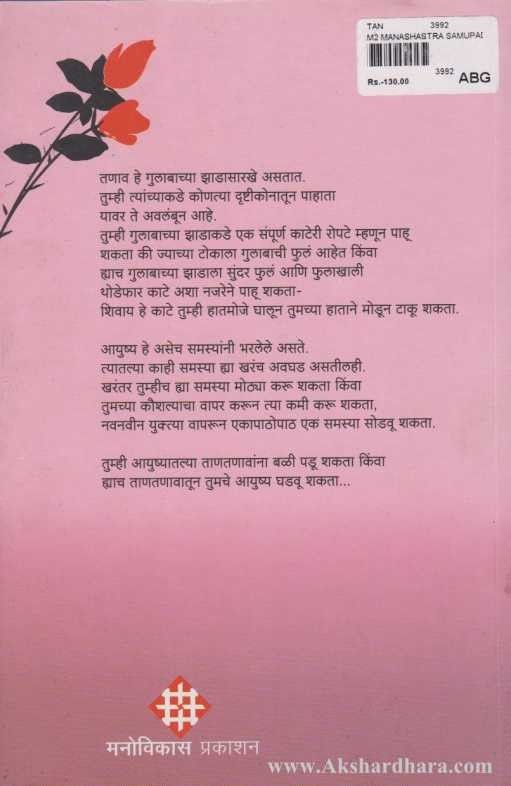 TAN 3992
M2 MANASHASTRA SAMUPAD
3992
Rs.-130.00 ABG
तणाव हे गुलाबाच्या झाडासारखे असतात.
तुम्ही त्यांच्याकडे कोणत्या दृष्टीकोनातून पाहाता
यावर ते अवलंबून आहे.
तुम्ही गुलाबाच्या झाडाकडे एक संपूर्ण काटेरी रोपटे म्हणून पाहू
शकता की ज्याच्या टोकाला गुलाबाची फुलं आहेत किंवा
ह्याच गुलाबाच्या झाडाला सुंदर फुलं आणि फुलाखाली
थोडेफार काटे अशा नजरेने पाहू शकता-
शिवाय हे काटे तुम्ही हातमोजे घालून तुमच्या हाताने मोडून टाकू शकता.
आयुष्य हे असेच समस्यांनी भरलेले असते.
त्यातल्या काही समस्या ह्या खरंच अवघड असतीलही.
खरंतर तुम्हीच ह्या समस्या मोठ्या करू शकता किंवा
तुमच्या कौशल्याचा वापर करून त्या कमी करू शकता,
नवनवीन युक्त्या वापरून एकापाठोपाठ एक समस्या सोडवू शकता.
तुम्ही आयुष्यातल्या ताणतणावांना बळी पडू शकता किंवा
ह्याच ताणतणावातून तुमचे आयुष्य घडवू शकता...
मनोविकास प्रकाशन
www.Akshardhara.com